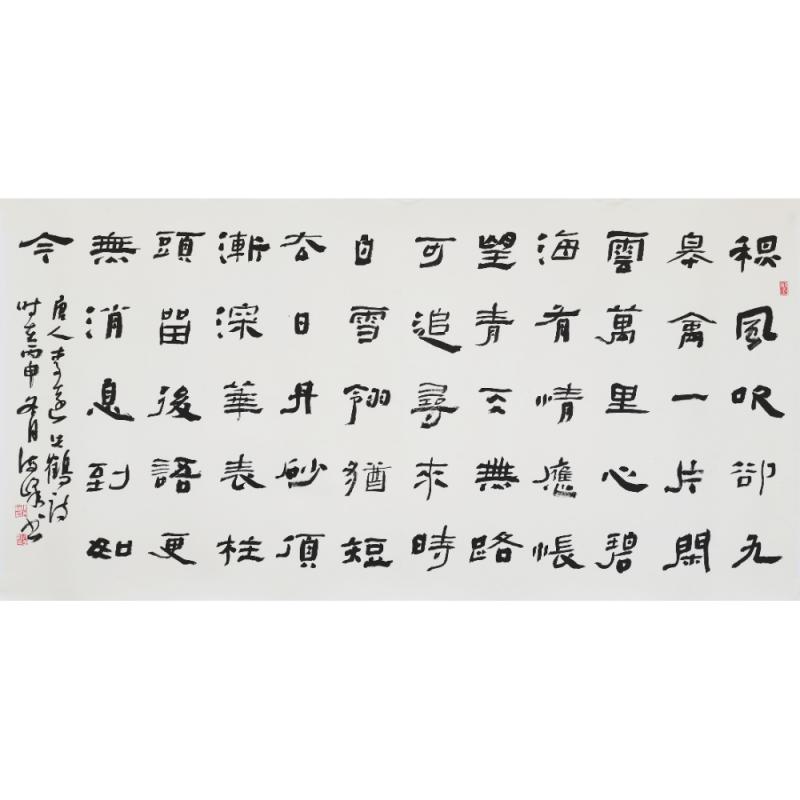 秋風吹卻九
皋禽一片閑
雲萬里心碧
海有情應悵
望青天無路
可追尋來時
白雪翎猶短
去日丹砂頂
漸深華表柱
頭留後語更
無消息到如
今
唐人李遠失鶴詩
時在丙申冬月書